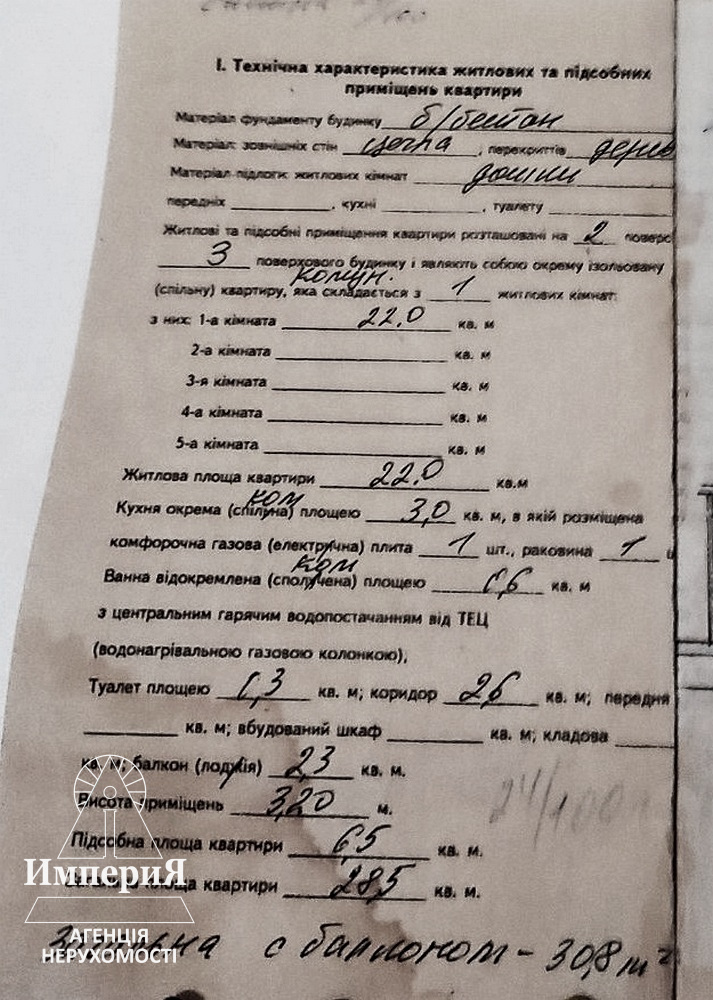 І. Технічна характеристика житлових та підсобних
приміщень квартири
Матеріал фундаменту будинку б/бетон
Матеріал: зовнішніх стін цегла, перекриттів дерев
Матеріал підлоги: житлових кімнат дошки
передніх , кухні , туалету
Житлові та підсобні приміщення квартири розташовані на 2 поверс
3 поверхового будинку і являють собою окрему ізольовану
комун.
(спільну) квартиру, яка складається з 1 житлових кімнат:
з них: 1-а кімната 22.0 кв. м
2-а кімната кв. м
3-я кімната кв. м
4-а кімната кв. м
5-а кімната кв. м
Житлова площа квартири 22.0 кв.м
ком
Кухня окрема (спільна) площею 3,0 кв. м, в якій розміщена
комфорочна газова (електрична) плита 1 шт., раковина 1 ш
ком
Ванна відокремлена (сполучена) площею 0,6 кв. м
з центральним гарячим водопостачанням від ТЕЦ
(водонагрівальною газовою колонкою),
Туалет площею 0,3 кв. м; коридор 2,6 кв. м; передня
кв. м; вбудований шкаф кв. м; кладова
кв. м; балкон (лоджія) 2,3 кв. м.
Висота приміщень 3,20 м.
24/100
Підсобна площа квартири 6,5 кв. м.
Загальна площа квартири 28,5 кв. м.
Загальна с балконом - 30,8 m²
ИмпериЯ
АГЕНЦІЯ
НЕРУХОМОСТІ